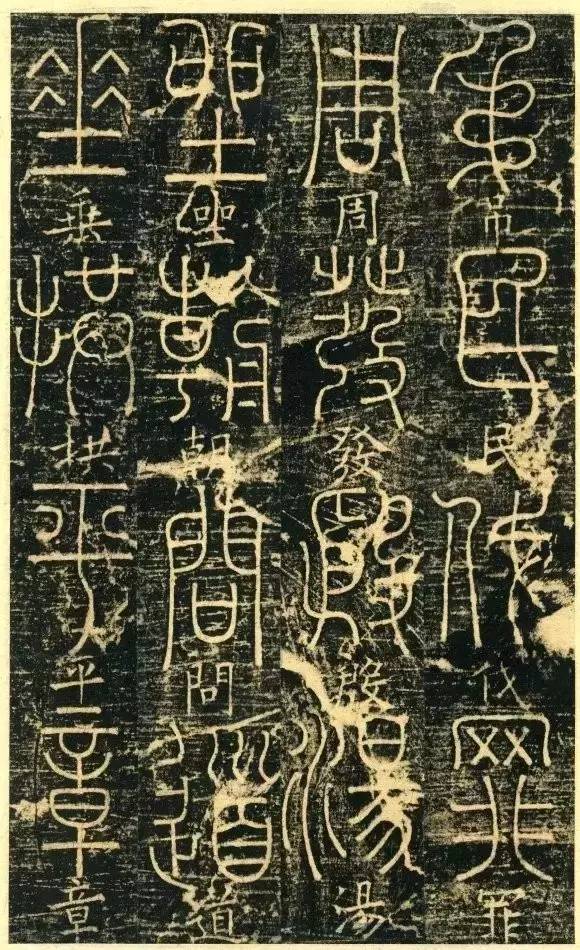 弔民伐罪
周發殷湯
坐朝問道
垂拱平章